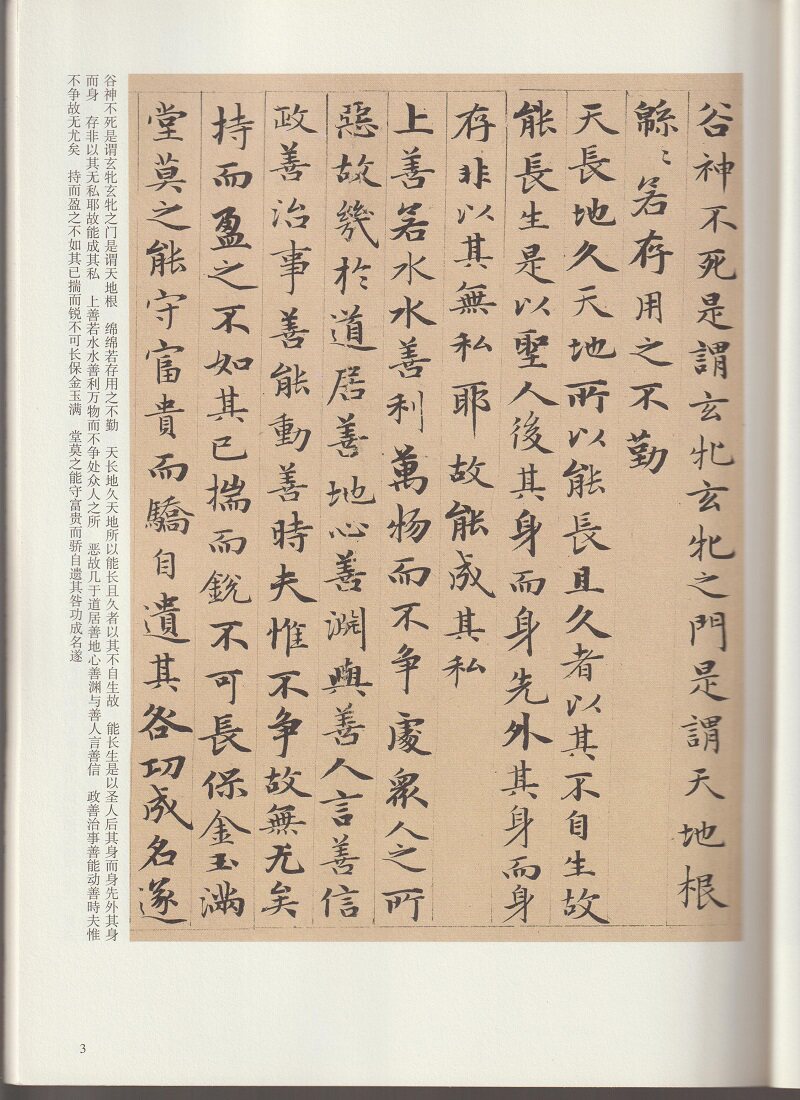 谷神不死是謂玄牝玄牝之門是謂天地根
緜〻若存用之不勤
天長地久天地所以能長且久者以其不自生故
能長生是以聖人後其身而身先外其身而身
存非以其無私耶故能成其私
上善若水水善利萬物而不争處眾人之所
惡故幾於道居善地心善淵與善人言善信
政善治事善能動善時夫惟不争故無尤矣
持而盈之不如其已揣而銳不可長保金玉滿
堂莫之能守富貴而驕自遺其咎功成名遂
谷神不死是谓玄牝玄牝之门是谓天地根 绵绵若存用之不勤 天长地久天地所以能长且久者以其不自生故 能长生是以圣人后其身而身先外其身
而身 存非以其无私耶故能成其私 上善若水水善利万物而不争处众人之所 恶故几于道居善地心善渊与善人言善信 政善治事善能动善時夫惟
不争故无尤矣 持而盈之不如其已揣而锐不可长保金玉满 堂莫之能守富贵而骄自遗其咎功成名遂
3